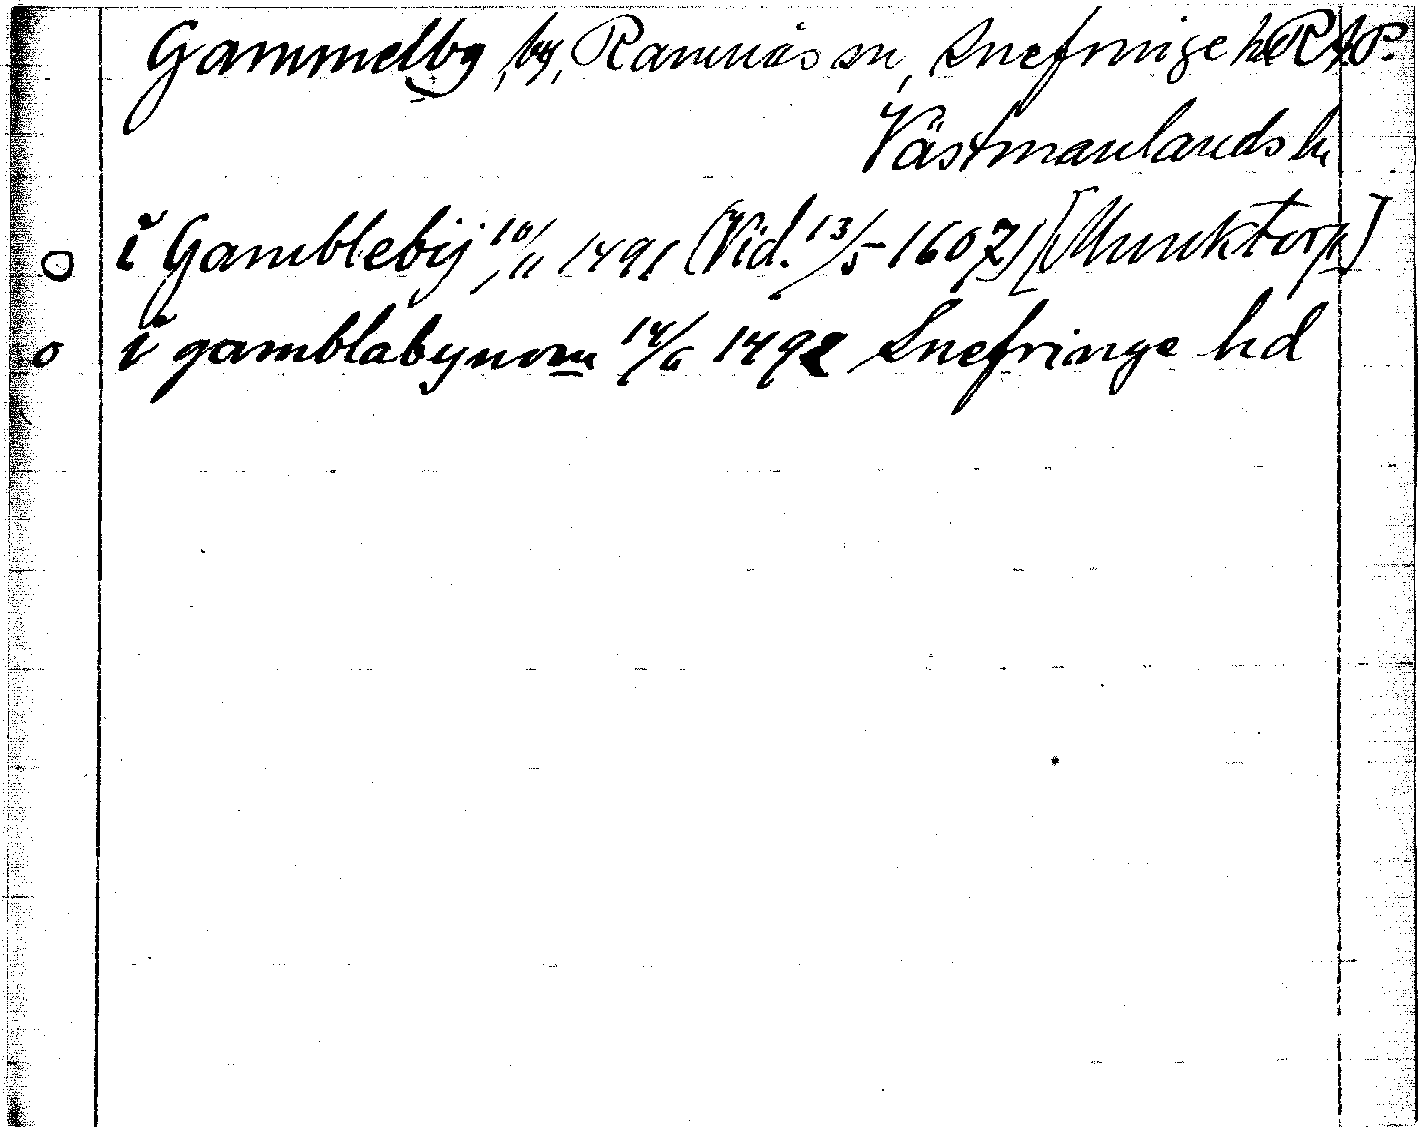 Gammelby, by, Ramnäs sn, Snefringe hd RAP.
Västmanlands län
i Gamblebÿ 10/11 1491 (Vid. 13/5 1607) [Munktorp]
i gamblabynom 14/6 1492 Snefringe hd